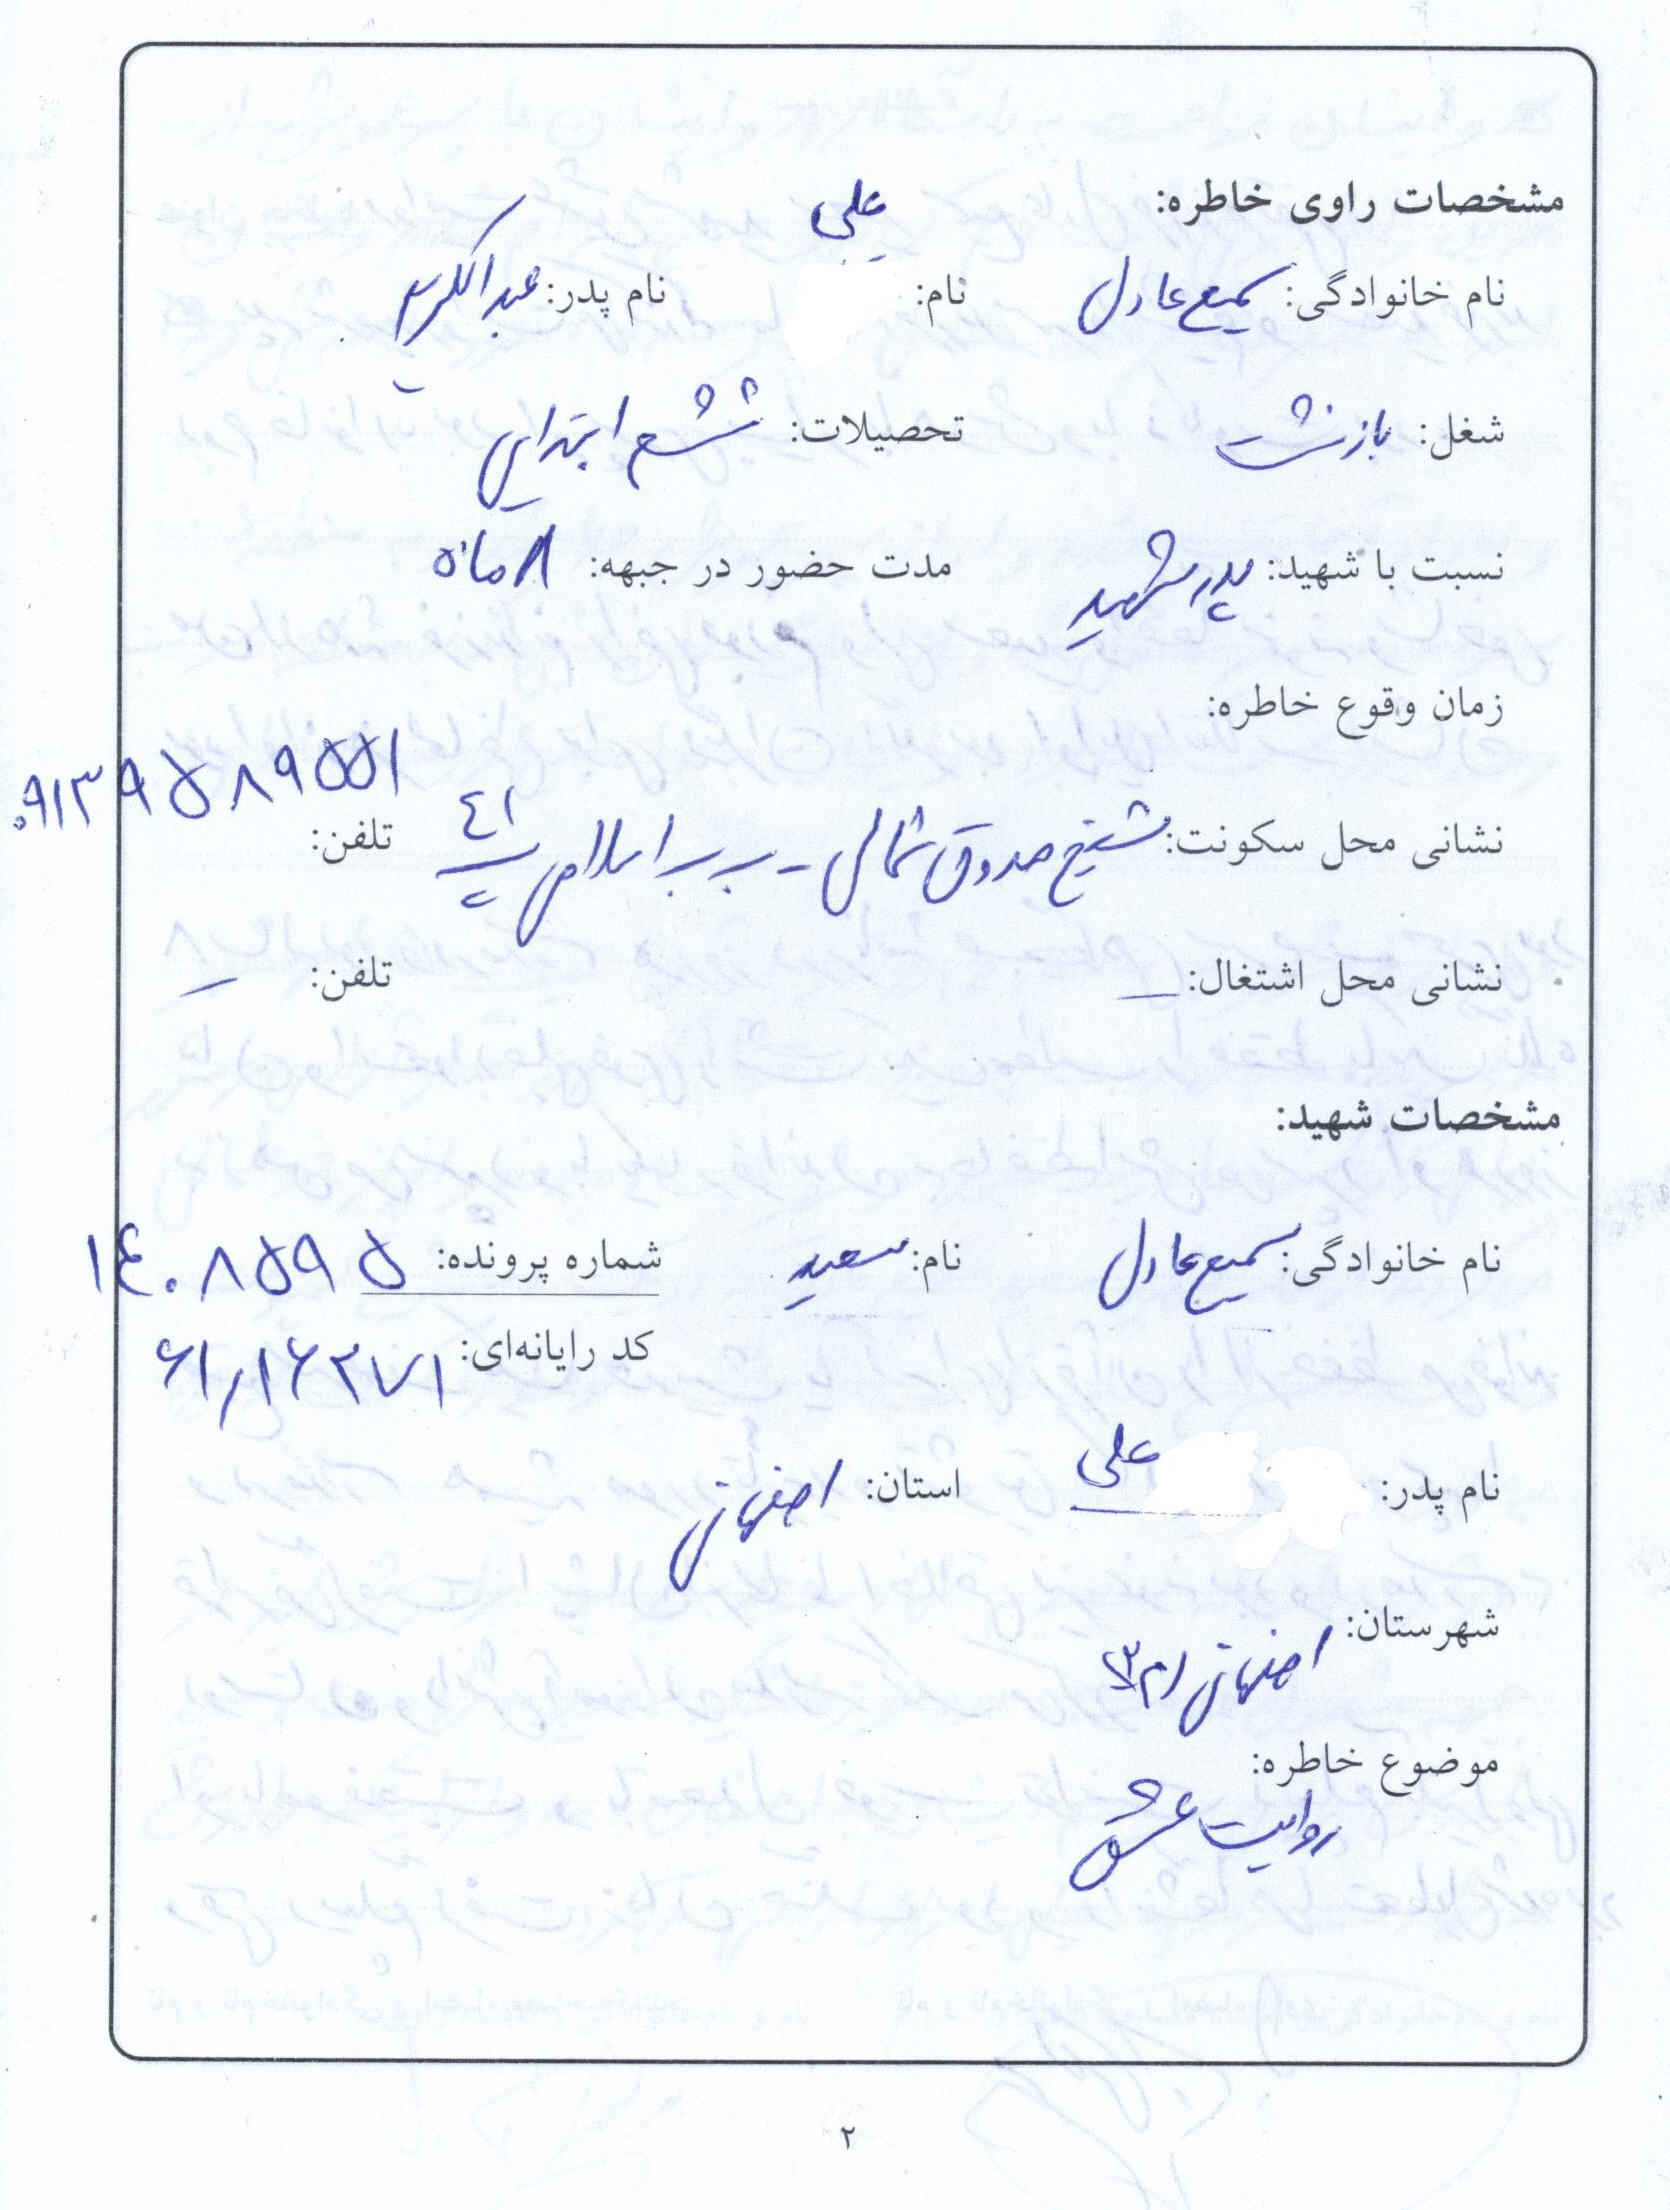 مشخصات راوی خاطره:
نام خانوادگی: سمیع عادل نام: علی نام پدر: عبدالکریم
شغل: بازنشست تحصیلات: ششم ابتدایی
نسبت با شهید: پدر شهید مدت حضور در جبهه: ۸ ماه
زمان وقوع خاطره:
نشانی محل سکونت: شیخ صدوق شمالی - تلفن: ۰۹۱۳۹۵۸۹۵۵۱
نشانی محل اشتغال: – تلفن: –
مشخصات شهید:
نام خانوادگی: سمیع عادل نام: سعید شماره پرونده: ۱۴۰۸۵۹۵
کد رایانه‌ای: ۶۱/۱۶۲۷۱
نام پدر: علی استان: اصفهان
شهرستان: اصفهان
موضوع خاطره:
روایت عشق
۲